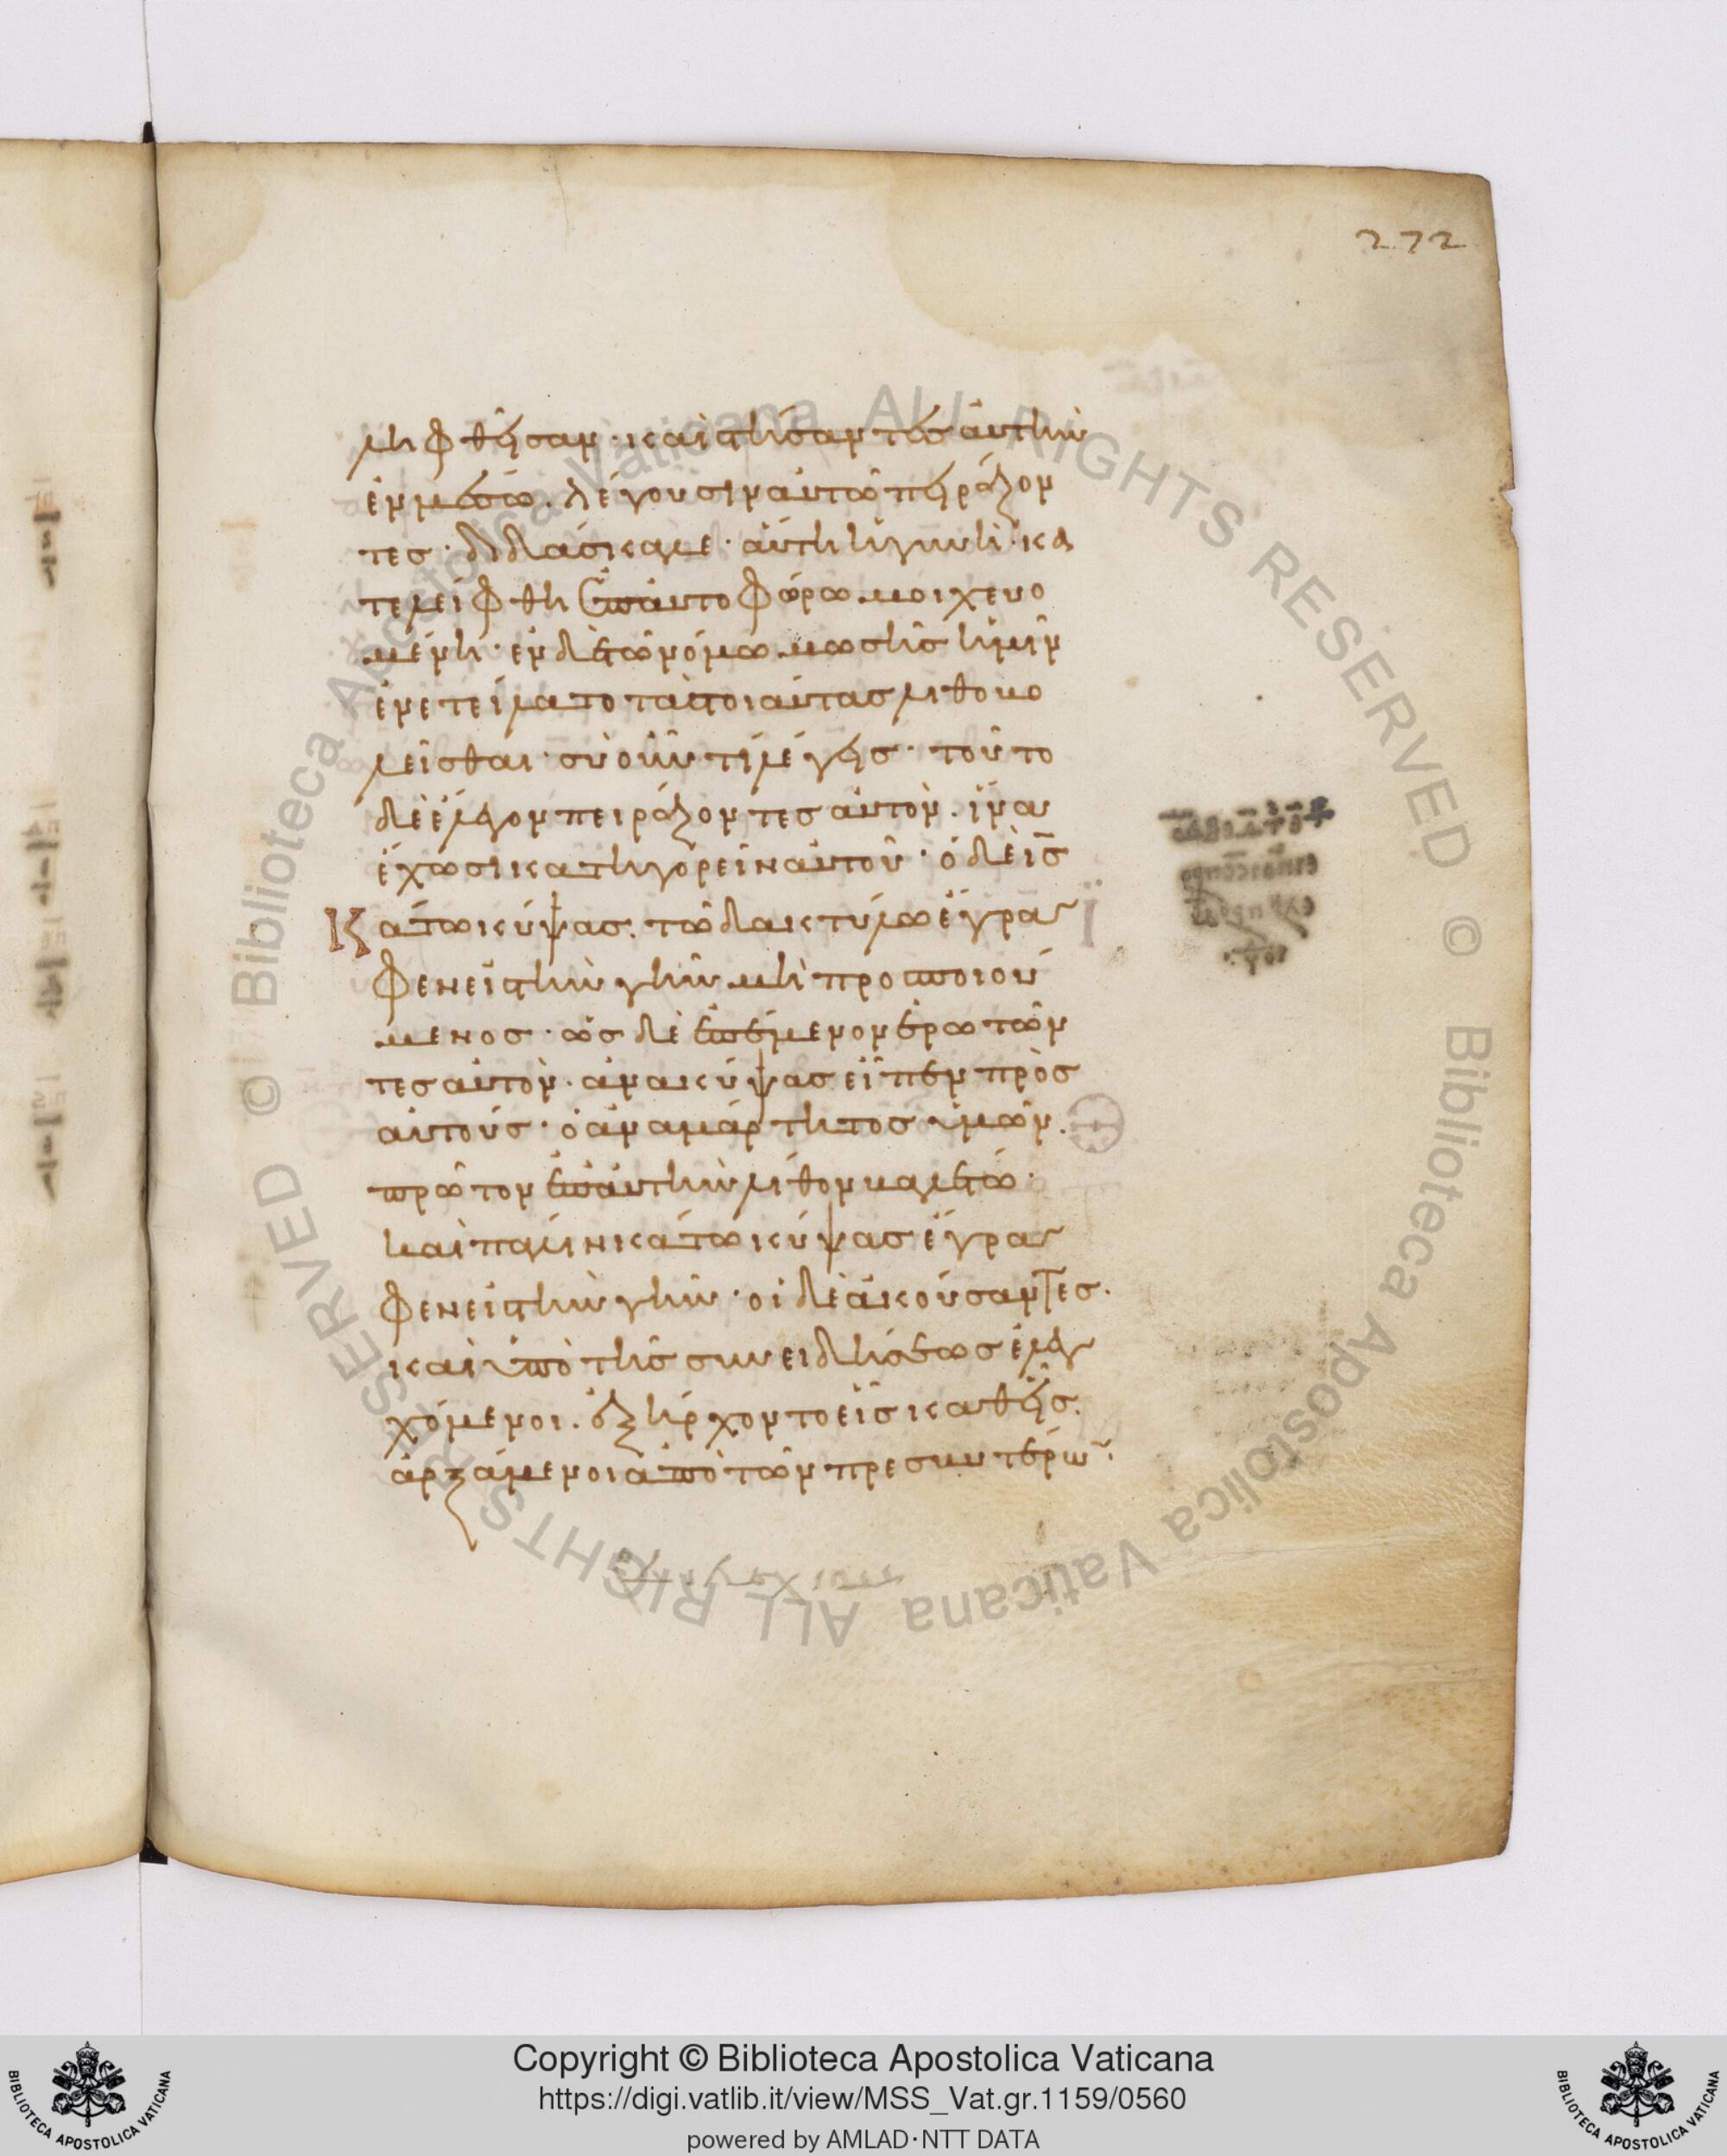 272
ληφθεῖσαν· καὶ στήσαντες αὐτὴν
ἐν μέσω. λέγουσιν αὐτῶ πειράζον
τες· διδάσκαλε· αὕτη ἡ γυνὴ· κα
τελείφθη ἐπαυτοφώρω μοιχευο
μένη· ἐν δὲ τῶ νόμω μωσῆς ἡμῖν
ἐνετείλατο τὰς τοιαύτας λιθοβο
λεῖσθαι· σὺ οὖν τί λέγεις· τοῦτο
δὲ ἔλεγον πειράζοντες αὐτὸν. ἵνα
ἔχωσι κατηγορεῖν αὐτοῦ· ὁ δὲ ις̅
κάτω κύψας. τῶ δακτύλω ἔγρα
φεν εἰς τὴν γῆν μὴ προσποιού
μενος· ὡς δὲ ἐπέμενον ἐρωτῶν
τες αὐτὸν. ἀνακύψας εἶπεν πρὸς
αὐτούς· ὁ ἀναμάρτητος ὑμῶν.
πρῶτον ἐπ αὐτὴν λίθον βαλέτω·
καὶ πάλιν κάτω κύψας ἔγρα
φεν εἰς τὴν γῆν· οἱ δὲ ἀκούσαντες.
καὶ ὑπὸ τῆς συνειδήσεως ἐλεγ
χόμενοι. ἐξήρχοντο εἷς καθεῖς.
ἀρξάμενοι ἀπὸ τῶν πρεσβυτέρω̅.
Copyright © Biblioteca Apostolica Vaticana
https://digi.vatlib.it/view/MSS_Vat.gr.1159/0560
powered by AMLAD·NTT DATA
BIBLIOTECA APOSTOLICA VATICANA
BIBLIOTECA APOSTOLICA VATICANA
© Biblioteca Apostolica Vaticana ALL RIGHTS RESERVED © Biblioteca Apostolica Vaticana ALL RIGHTS RESERVED